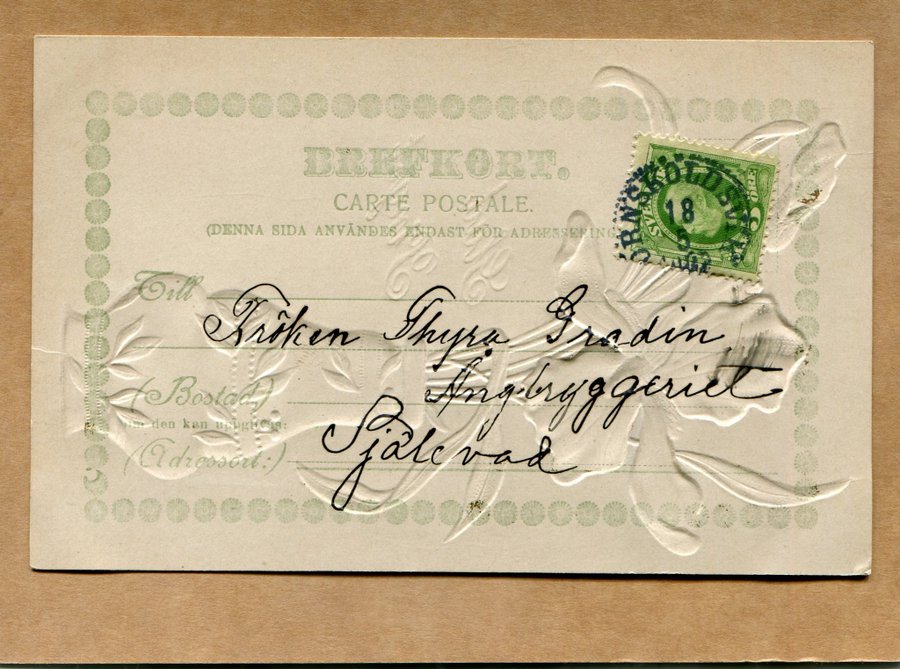 BREFKORT.
CARTE POSTALE.
(DENNA SIDA ANVÄNDES ENDAST FÖR ADRESSERING
Till
Fröken Thyra Gradin
(Bostad)
den kan uppgifvas:
Ångbryggeriet
(Adressort:)
Själevad
ÖRNSKÖLDSVIK
18
5